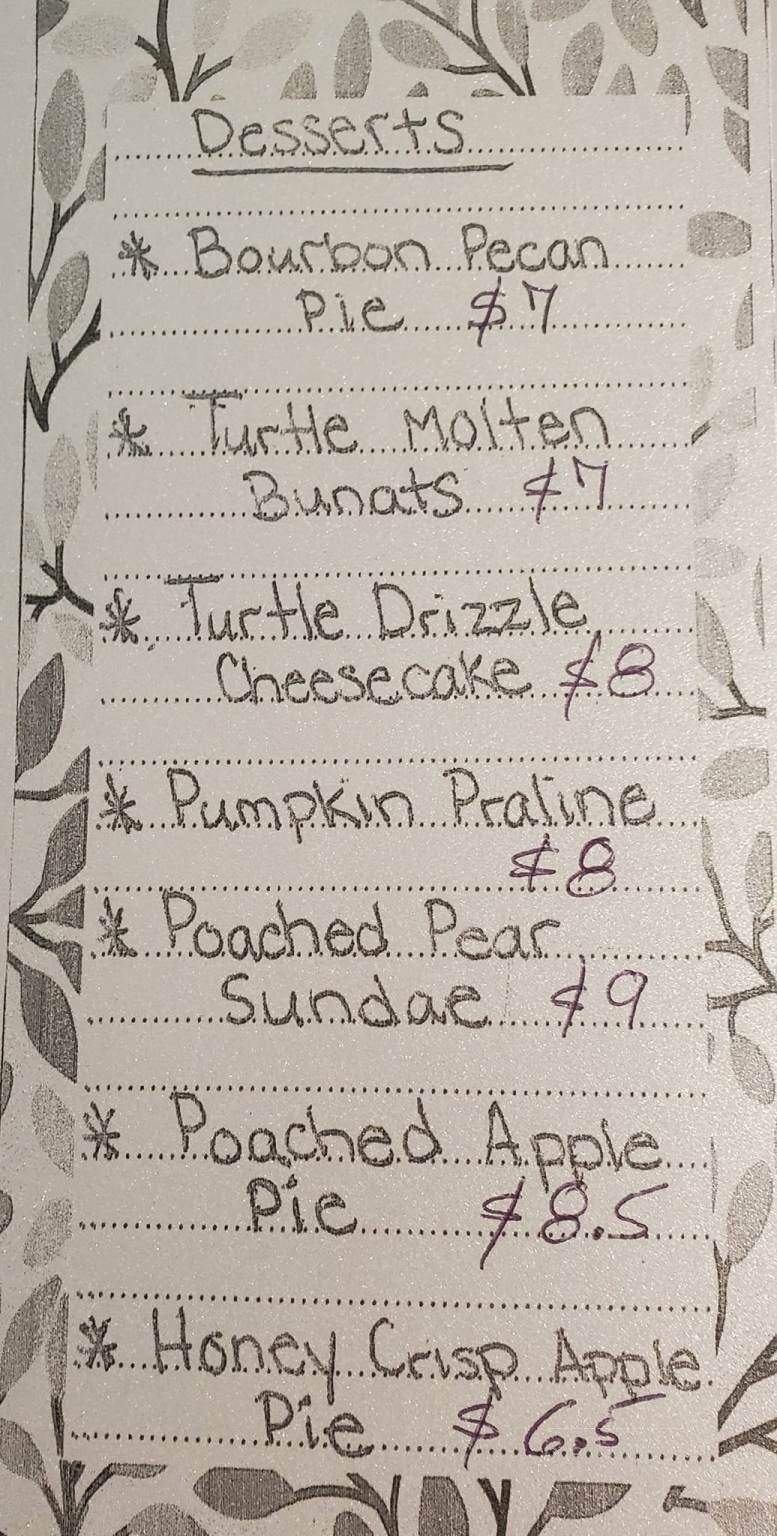 Desserts
* Bourbon Pecan
Pie $7
* Turtle Molten
Bunats $7
* Turtle Drizzle
Cheesecake $8
* Pumpkin Praline
$8
* Poached Pear
Sundae $9
* Poached Apple
Pie $8.5
* Honey Crisp Apple
Pie $6.5